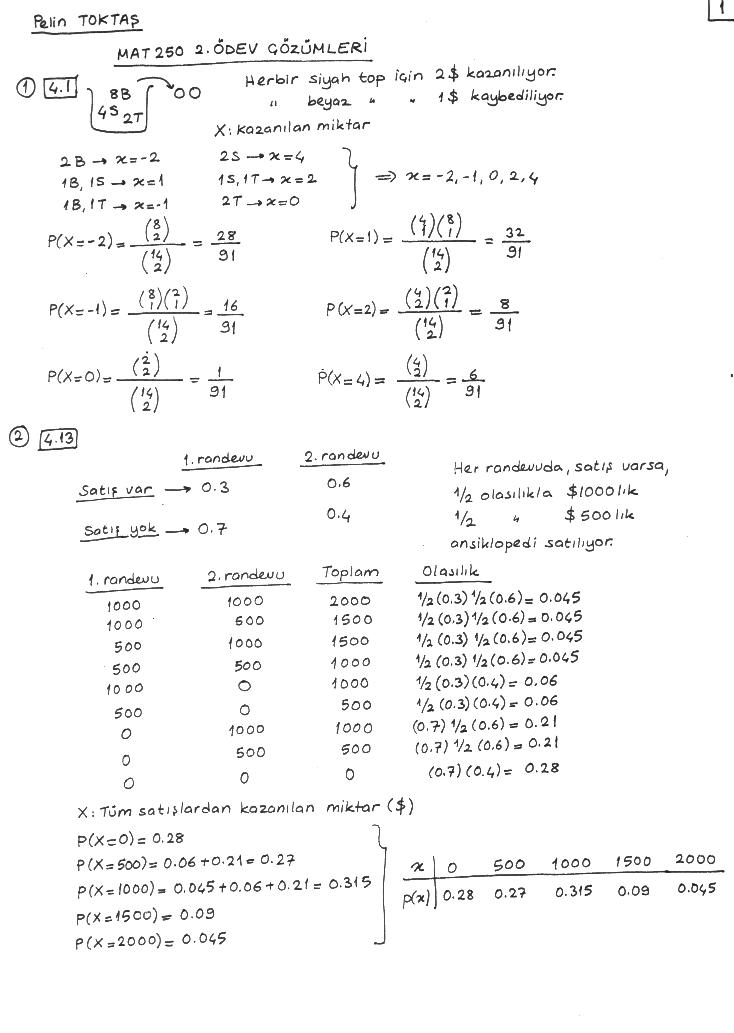 1
Pelin TOKTAŞ
MAT 250 2. ÖDEV ÇÖZÜMLERİ
① 4.1 8B 4S 2T OO Herbir siyah top için 2$ kazanılıyor.
" beyaz " " 1$ kaybediliyor.
X: kazanılan miktar
2B → x=-2 2S → x=4
1B, 1S → x=1 1S, 1T → x=2 ⇒ x=-2,-1,0,2,4
1B, 1T → x=-1 2T → x=0
P(X=-2) = (8 2)/(14 2) = 28/91 P(X=1) = (4 1)(8 1)/(14 2) = 32/91
P(X=-1) = (8 1)(2 1)/(14 2) = 16/91 P(X=2) = (4 2)(2 1)/(14 2) = 8/91
P(X=0) = (2 2)/(14 2) = 1/91 P(X=4) = (4 2)/(14 2) = 6/91
② 4.13
1. randevu 2. randevu Her randevuda, satış varsa,
Satış var → 0.3 0.6 1/2 olasılıkla $1000 lık
Satış yok → 0.7 0.4 1/2 " $500 lik
ansiklopedi satılıyor.
1. randevu 2. randevu Toplam Olasılık
1000 1000 2000 1/2 (0.3) 1/2 (0.6) = 0.045
1000 500 1500 1/2 (0.3) 1/2 (0.6) = 0.045
500 1000 1500 1/2 (0.3) 1/2 (0.6) = 0.045
500 500 1000 1/2 (0.3) 1/2 (0.6) = 0.045
1000 0 1000 1/2 (0.3)(0.4) = 0.06
500 0 500 1/2 (0.3)(0.4) = 0.06
0 1000 1000 (0.7) 1/2 (0.6) = 0.21
0 500 500 (0.7) 1/2 (0.6) = 0.21
0 0 0 (0.7)(0.4) = 0.28
X: Tüm satışlardan kazanılan miktar ($)
P(X=0) = 0.28
P(X=500) = 0.06 + 0.21 = 0.27
P(X=1000) = 0.045 + 0.06 + 0.21 = 0.315
P(X=1500) = 0.09
P(X=2000) = 0.045
x 0 500 1000 1500 2000
p(x) 0.28 0.27 0.315 0.09 0.045